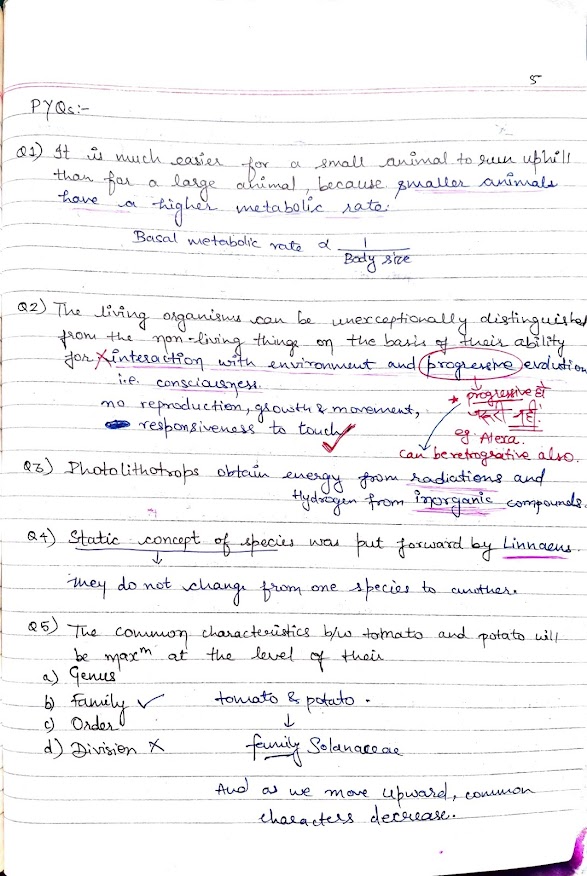 5
PYQs:-
Q1) It is much easier for a small animal to run uphill
than for a large animal, because smaller animals
have a higher metabolic rate.
Basal metabolic rate α 1
Body size
Q2) The living organisms can be unexceptionally distinguished
from the non-living things on the basis of their ability
for interaction with environment and progressive evolution
i.e. consciousness.
no reproduction, growth & movement,
responsiveness to touch ✓
* progressive हो
जरूरी नहीं.
eg. Alexa.
can be retrogrative also.
Q3) Photolithotrops obtain energy from radiations and
Hydrogen from inorganic compounds.
Q4) Static concept of species was put forward by Linnaeus.
↓
They do not change from one species to another.
Q5) The common characteristics b/w tomato and potato will
be maxm at the level of their
a) Genus
b) Family ✓
c) Order
d) Division ×
tomato & potato.
↓
family Solanaceae
And as we move upward, common
characters decrease.